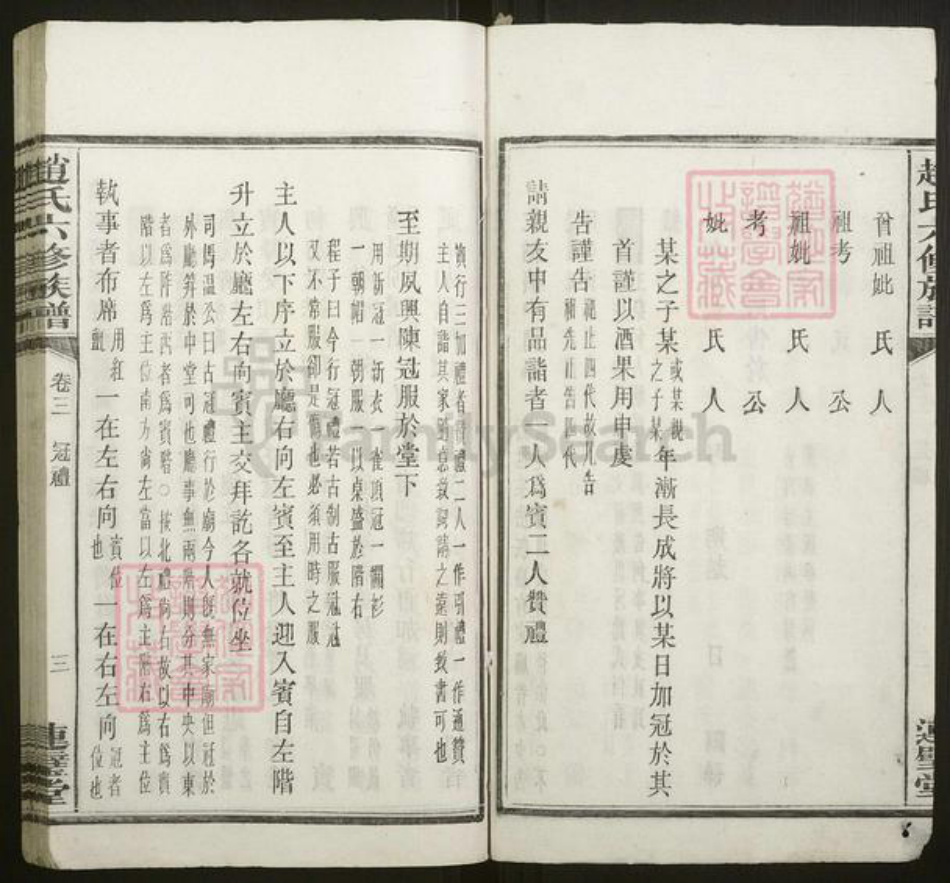 趙氏六修族譜
連璧堂
曾祖妣 氏 人
祖考 公
祖妣 氏 人
考 公
妣 氏 人
某之子某或某親之子某年漸長成將以某日加冠於其
首謹以酒果用申虔
告謹告禮止四代故凡告禰先止告四代
請親友中有品詣者一人為賓二人贊禮
資行三加禮者贊禮二人一作引禮一作通贊
主人自詣其家道意致詞請之遠則致書可也
至期夙興陳冠服於堂下
用新冠一新衣一雀頂冠一襴衫
一朝帽一朝服一以桌盛於階右
程子曰今行冠禮若古制古服冠冠
又不常服卻是僞也必須用時之服
主人以下序立於廳右向左賓至主人迎入賓自左階
升立於廳左右向賓主交拜訖各就位坐
司馬溫公曰古冠禮行於廟今人旣無家廟但冠於
外廳笄於中堂可也廳事無兩階則分其中央以東
者為阼階西者為賓階○按北禮尚右故以右為賓
階以左為主位南方尚左當以左為主階右為主位
執事者布席用紅氍一在左右向賓位也一在右左向冠者位也
趙氏六修族譜
卷三 冠禮
三
連璧堂
FamilySearch